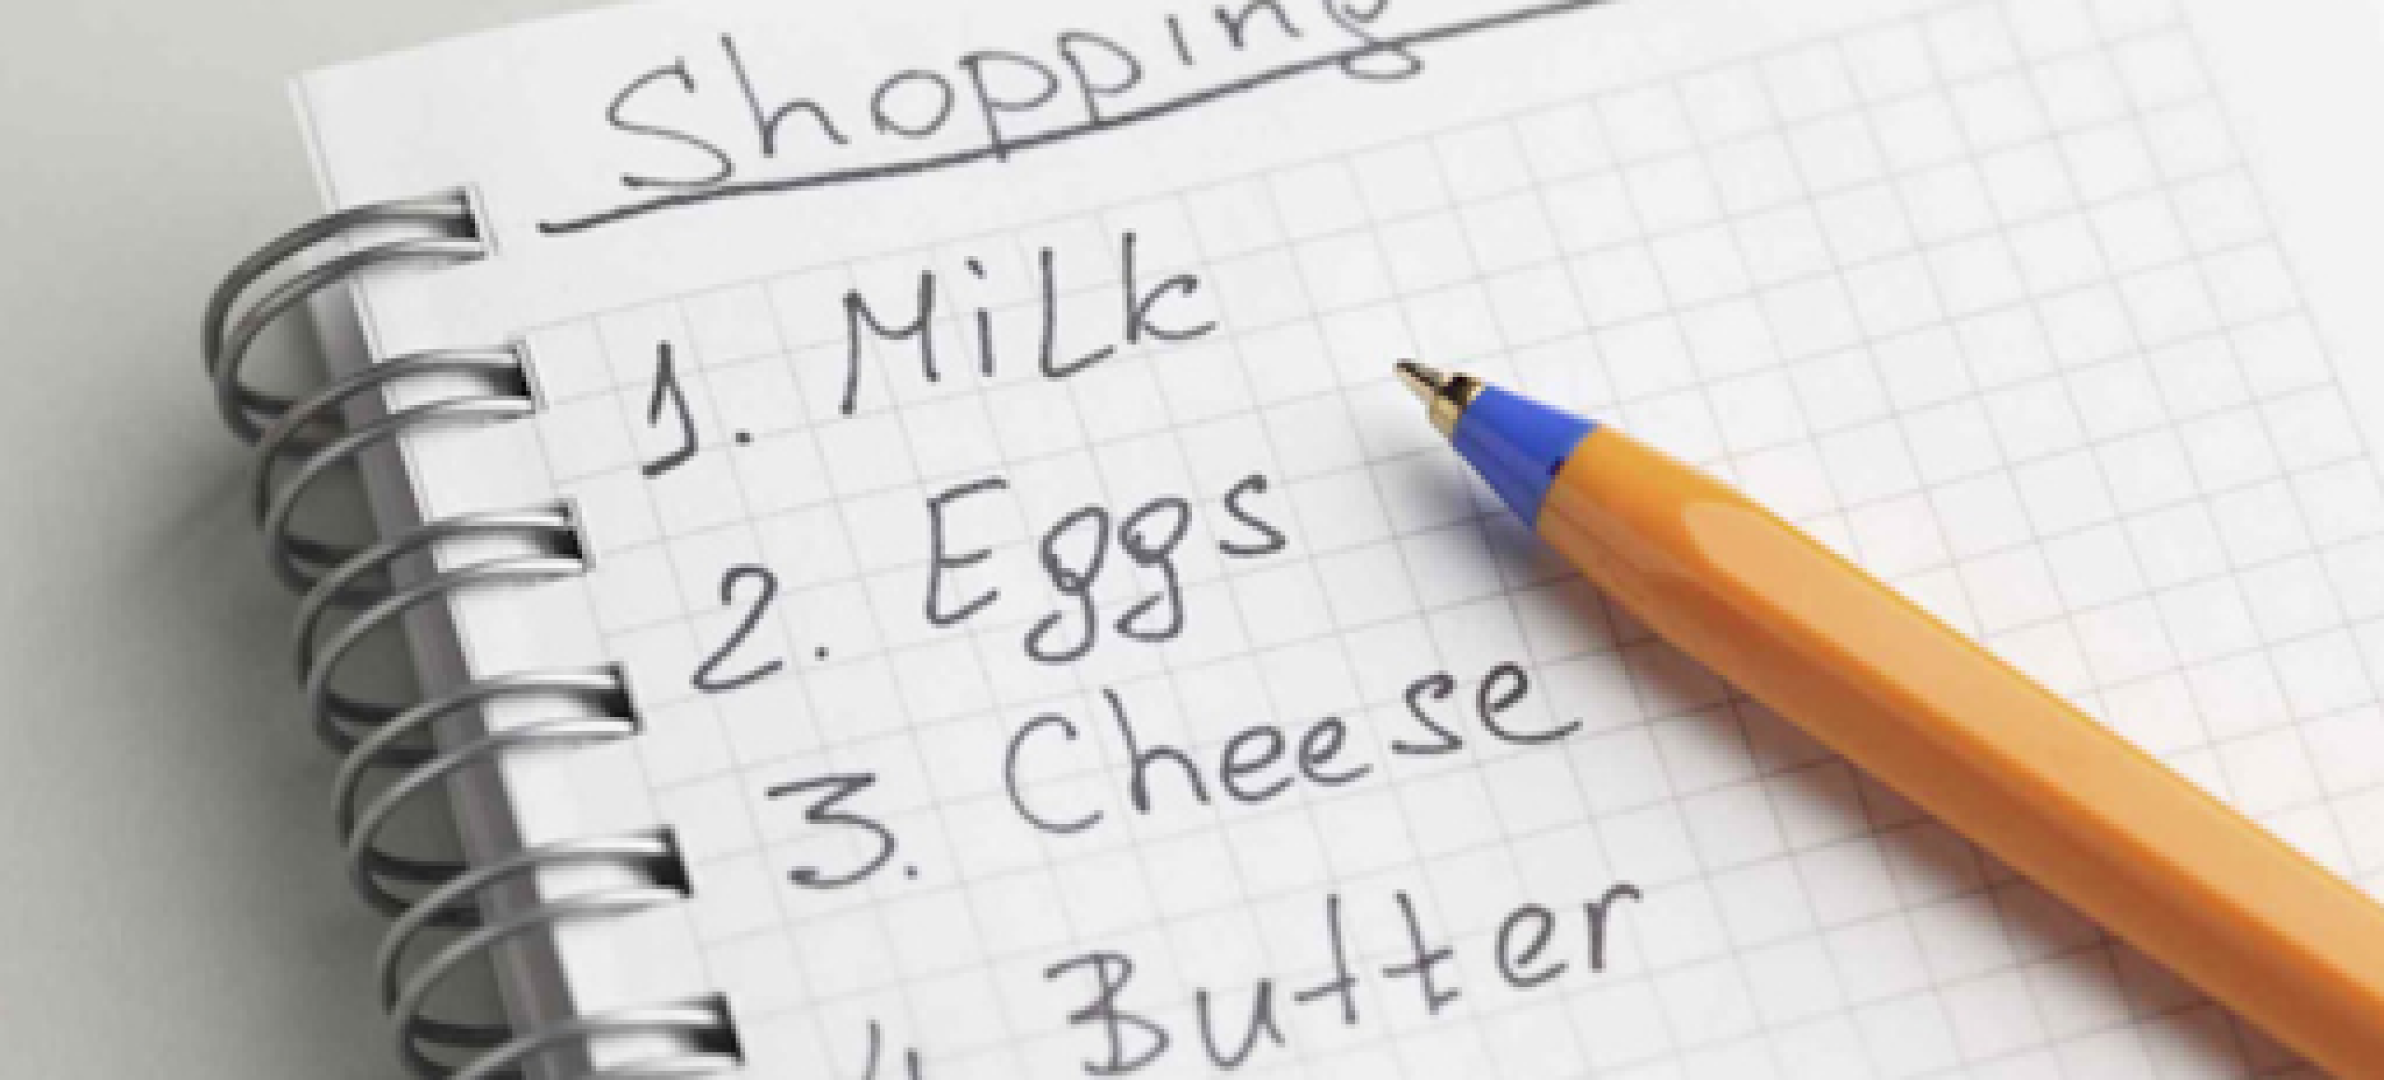 Shopping
1. Milk
2. Eggs
3. Cheese
4. Butter